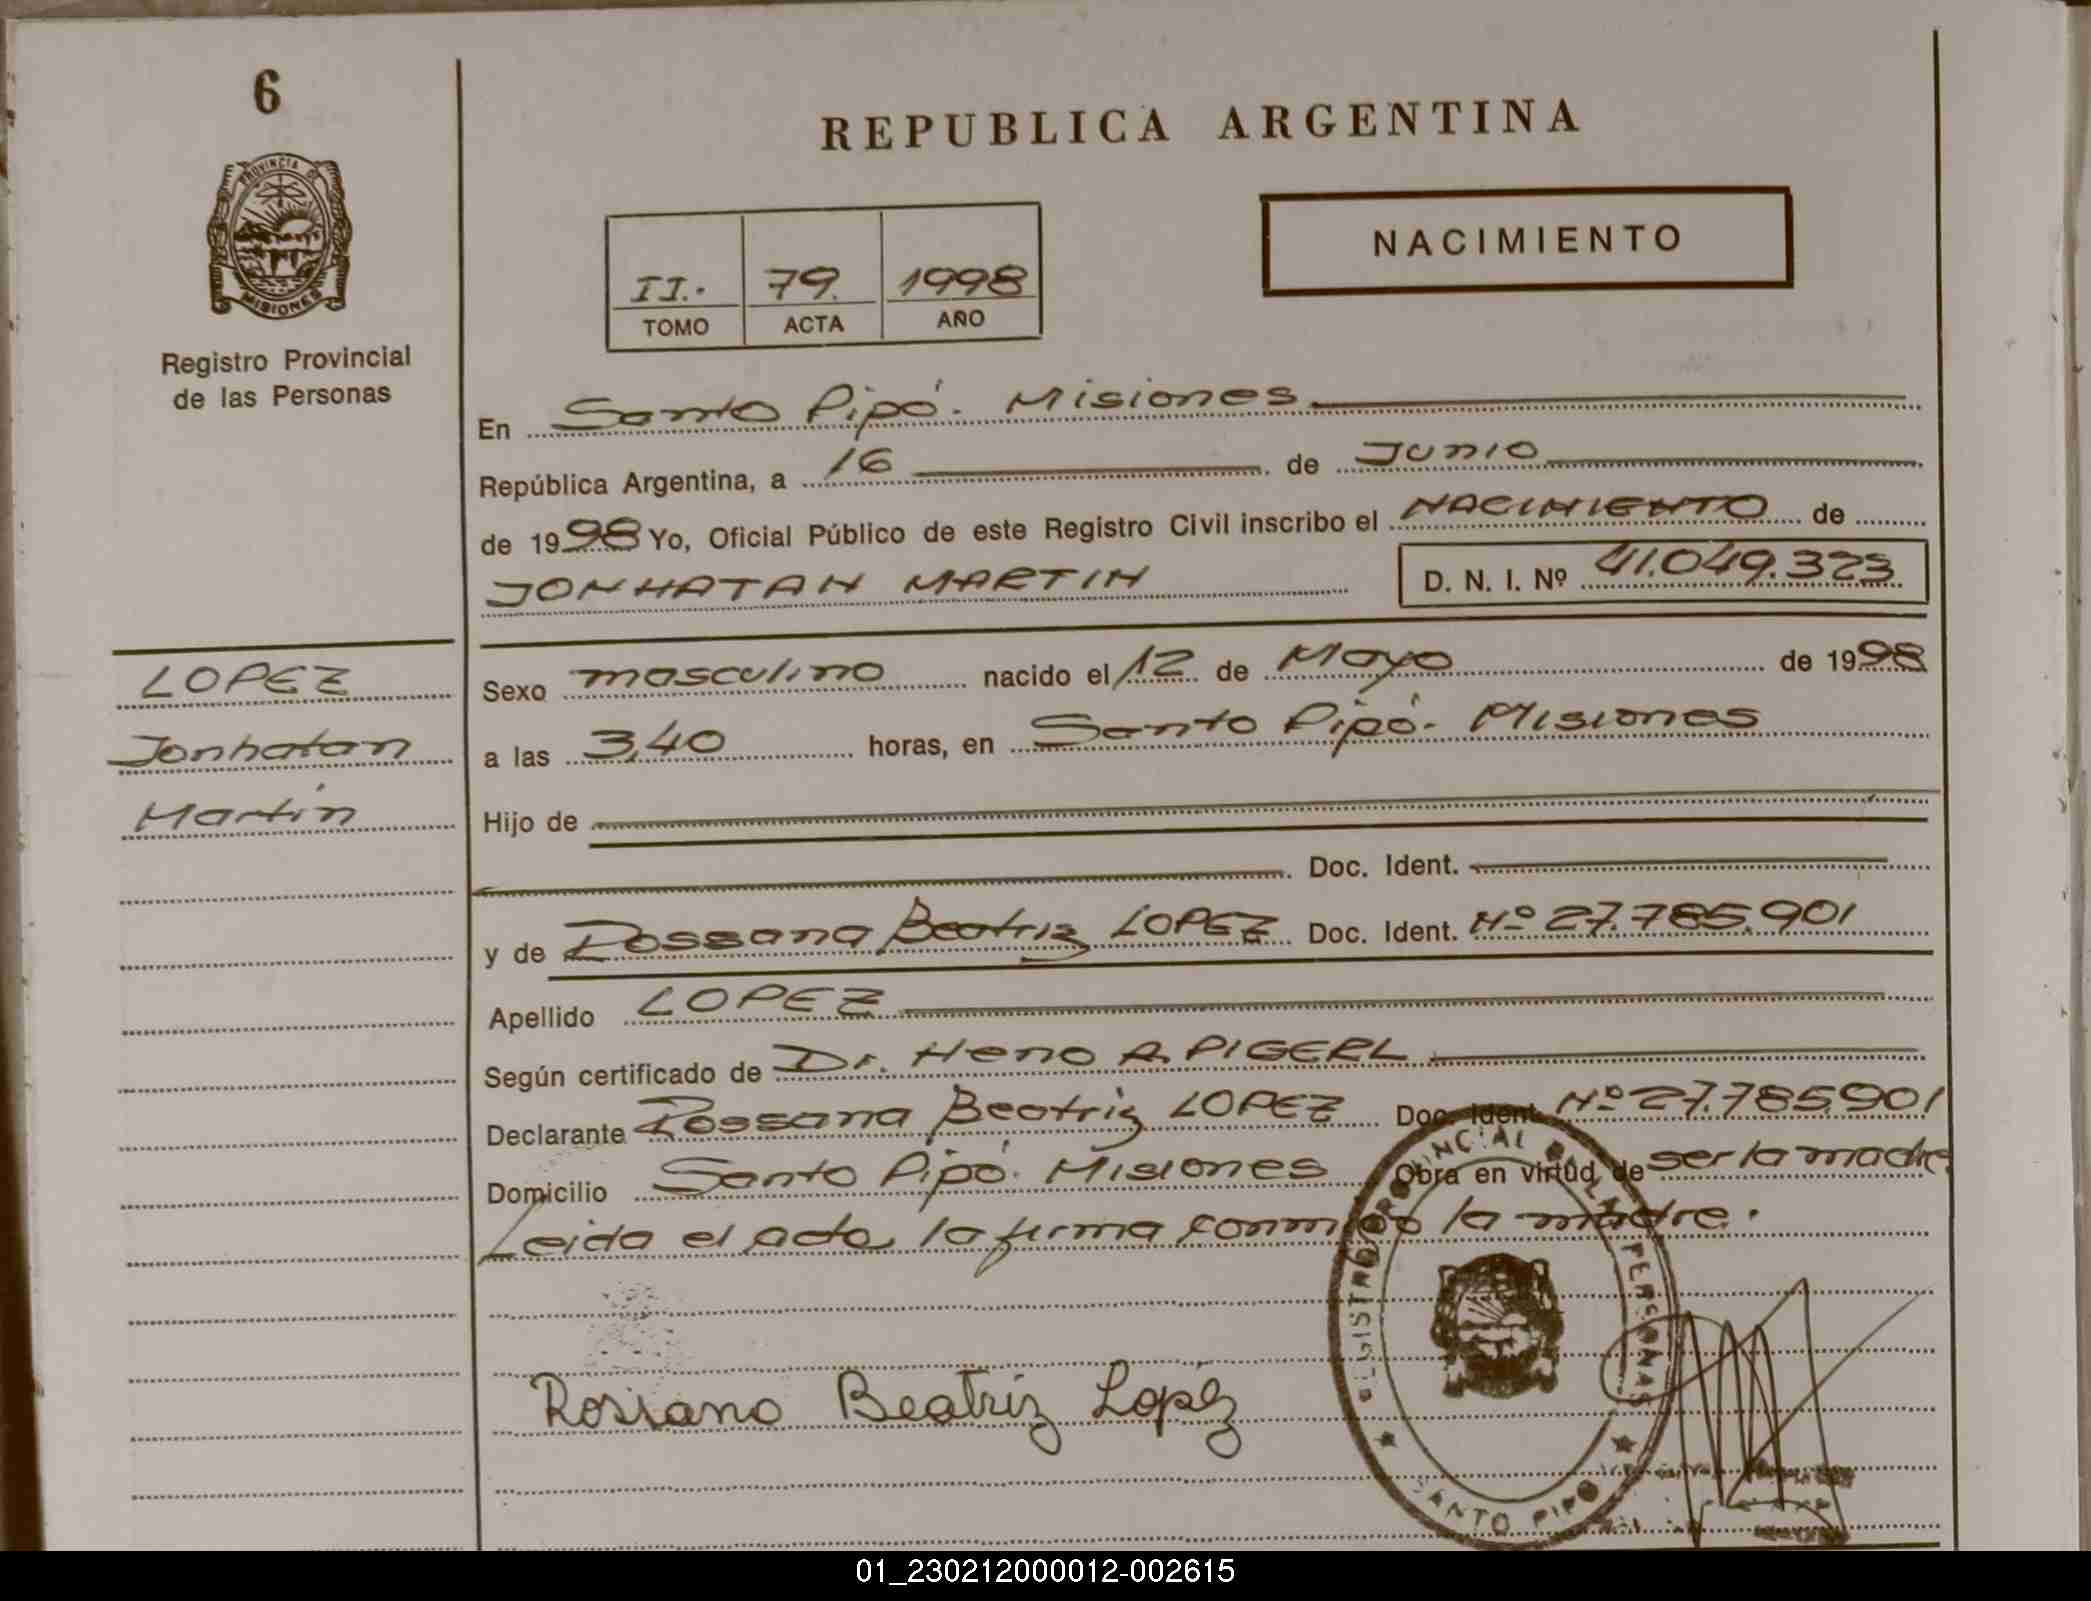 6
PROVINCIA DE
MISIONES
Registro Provincial
de las Personas
REPUBLICA ARGENTINA
NACIMIENTO
II.- 79. 1998
TOMO ACTA AÑO
En Santo Pipó. Misiones
República Argentina, a 16 de Junio
de 1998 Yo, Oficial Público de este Registro Civil inscribo el NACIMIENTO de
JONHATAN MARTIN D. N. I. Nº 41.049.323
LOPEZ
Jonhatan
Martín
Sexo masculino nacido el 12 de Mayo de 1998
a las 3,40 horas, en Santo Pipó- Misiones
Hijo de
Doc. Ident.
y de Rossana Beatriz LOPEZ Doc. Ident. Nº 27.785.901
Apellido LOPEZ
Según certificado de Dr. Heno A. PIGERL
Declarante Rossana Beatriz LOPEZ Doc. Ident. Nº 27.785.901
Domicilio Santo Pipó. Misiones Obra en virtud de ser la madre
Leida el acta, la firma conmigo la madre.
Rossana Beatriz Lopéz
REGISTRO PROVINCIAL DE LAS PERSONAS
SANTO PIPO
01_230212000012-002615